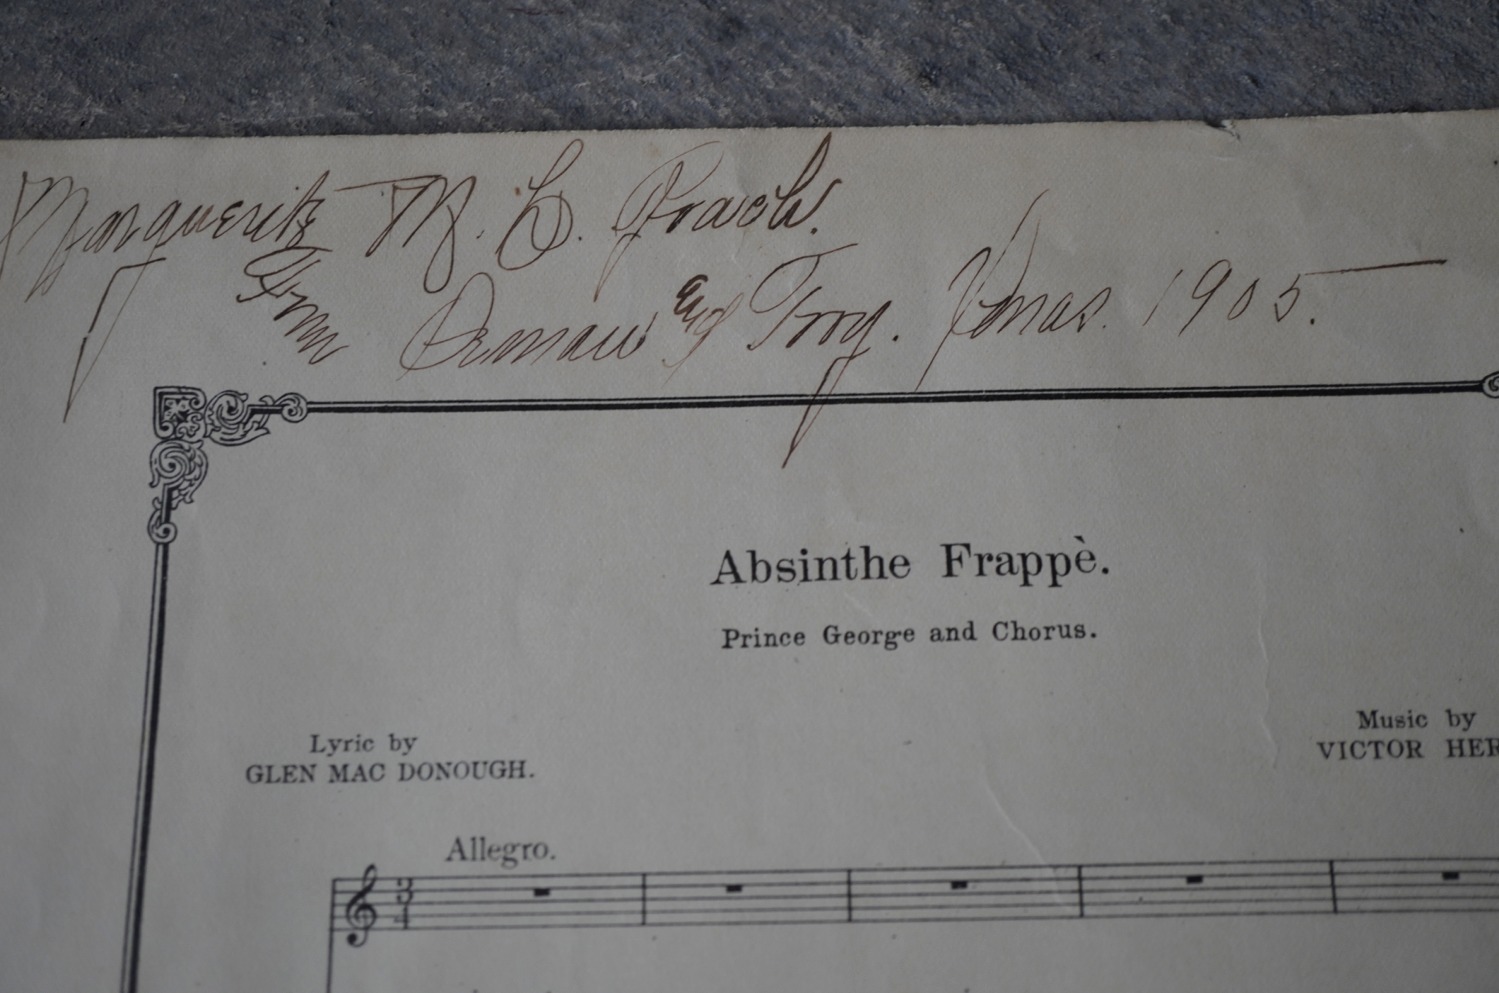 Marguerite M. C.
From and Troy. Xmas. 1905.
Absinthe Frappè.
Prince George and Chorus.
Lyric by
GLEN MAC DONOUGH.
Music by
VICTOR HER
Allegro.
3
4